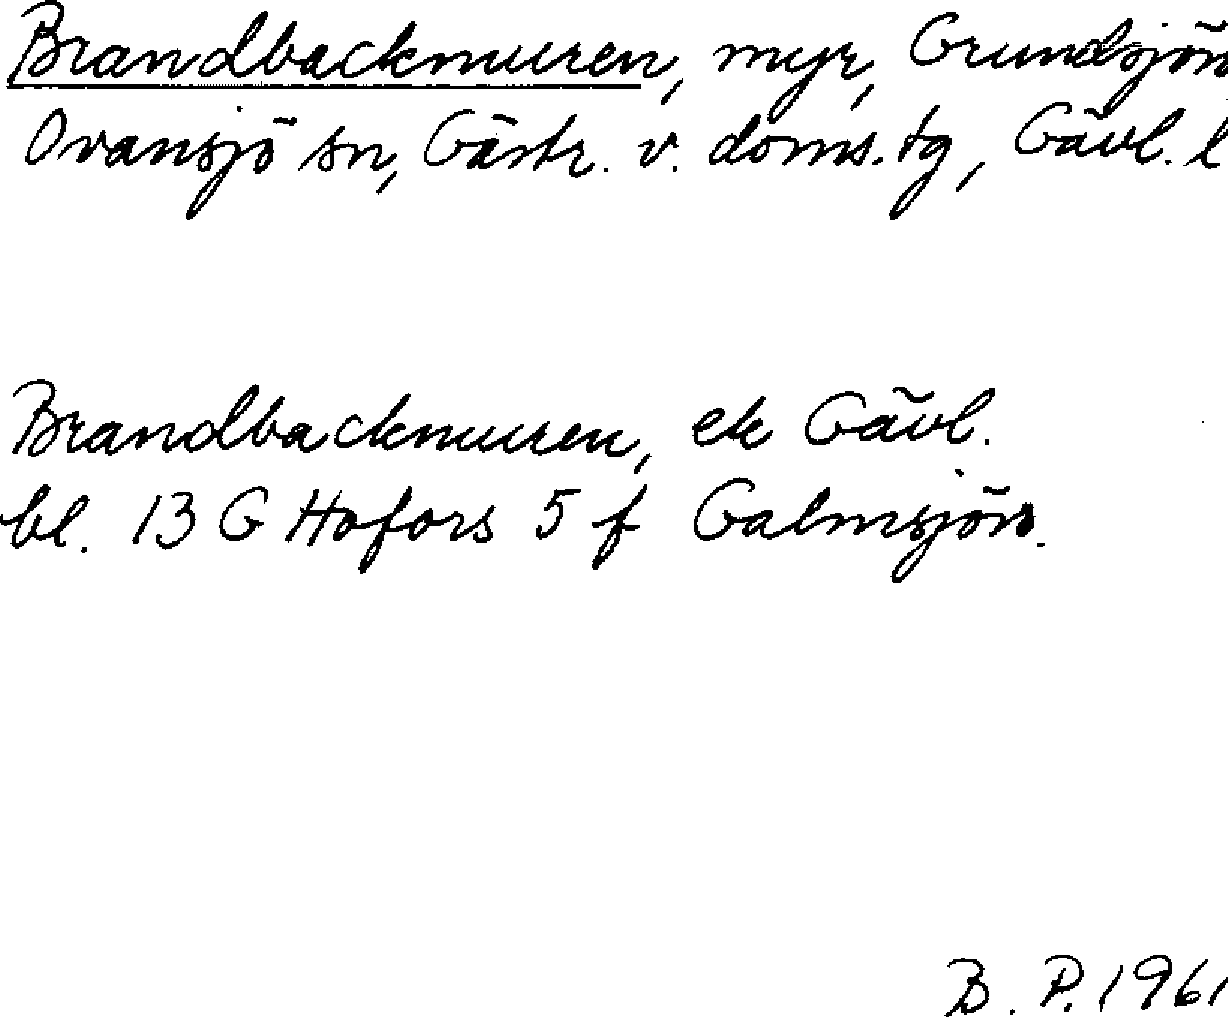 Brandbackmuren, myr, Grundsjön
Ovansjö sn, Gästr. v. doms. tg, Gävl. l
Brandbackmuren, ek Gävl.
bl. 13 G Hofors 5 f Galmsjön.
B. P. 1961